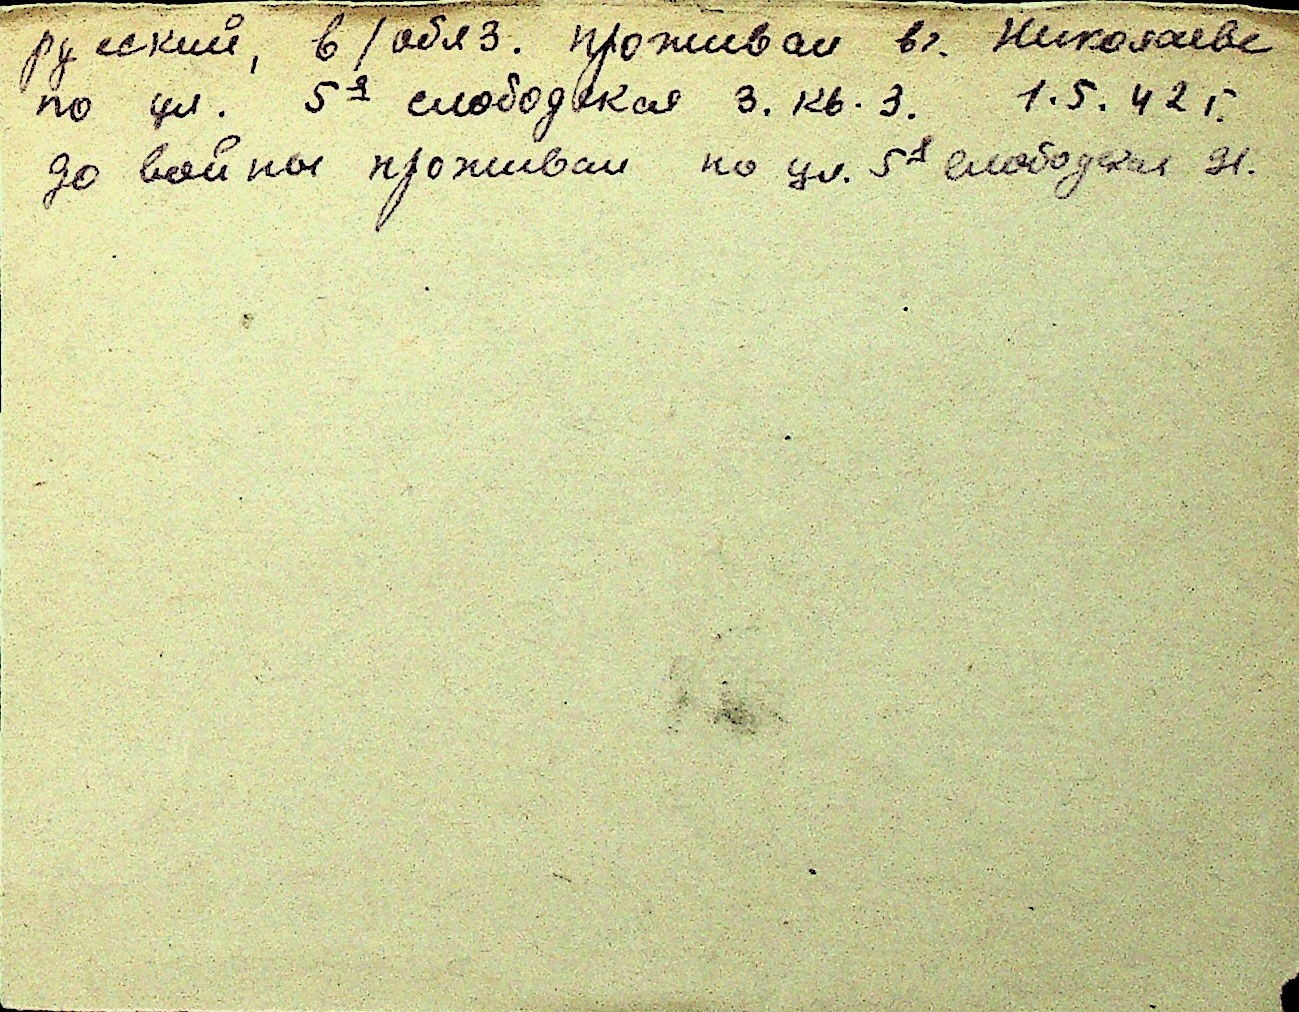 русский, в/обяз. проживал в г. Николаеве
по ул. 5я слободская 3. кв. 3. 1.5.42 г.
до войны проживал по ул. 5я слободская